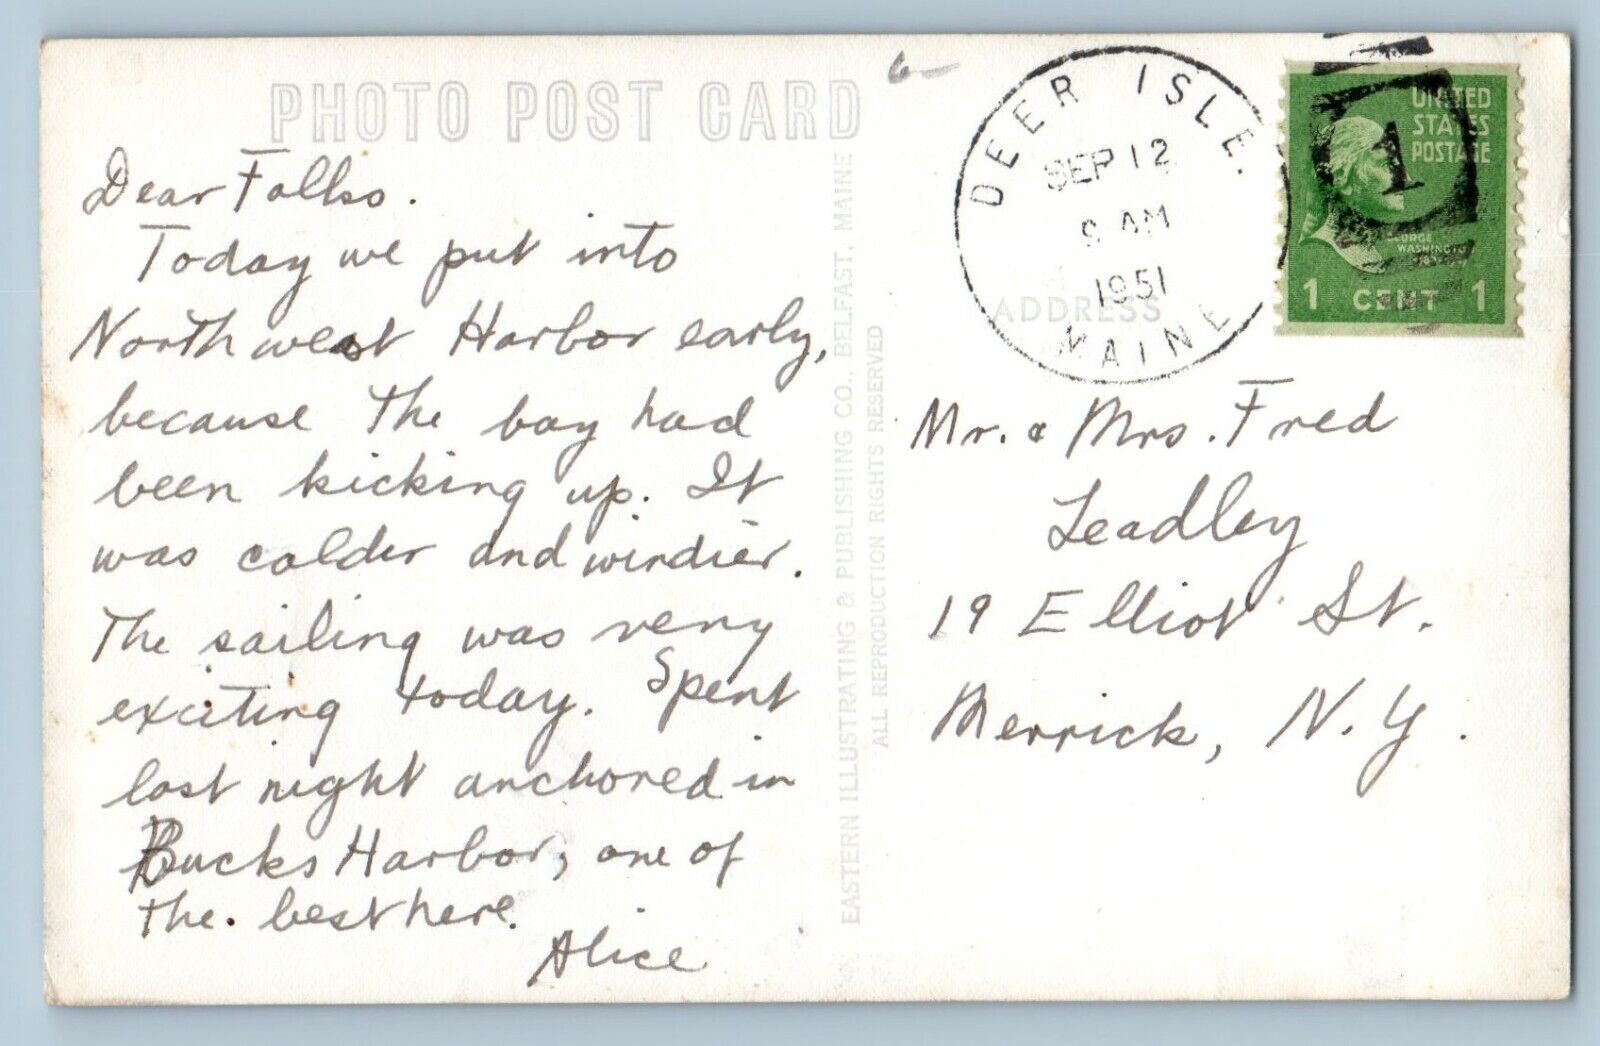 PHOTO POST CARD
Dear Folks.
Today we put into
Northwest Harbor early,
because the bay had
been kicking up. It
was colder and windier.
The sailing was very
exciting today. Spent
last night anchored in
Bucks Harbor, one of
the. best here.
Alice
EASTERN ILLUSTRATING & PUBLISHING CO., BELFAST, MAINE
ALL REPRODUCTION RIGHTS RESERVED
DEER ISLE.
SEP 12
9 AM
1951
MAINE
ADDRESS
UNITED
STATES
POSTAGE
1
GEORGE
WASHINGTON
1 CENT 1
Mr. & Mrs. Fred
Leadley
19 Elliot St.
Merrick, N.Y.